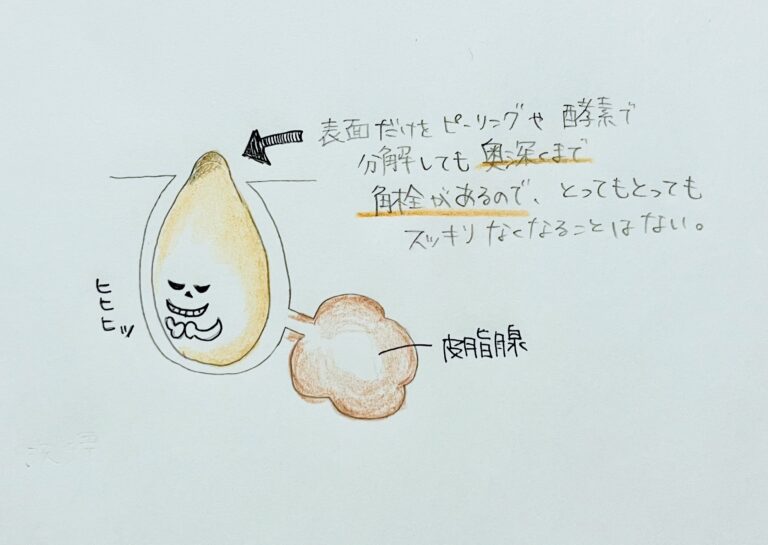 表面だけをピーリングや酵素で
分解しても奥深くまで
角栓があるので、とってもとっても
スッキリなくなることはない。
ヒヒヒッ
皮脂腺